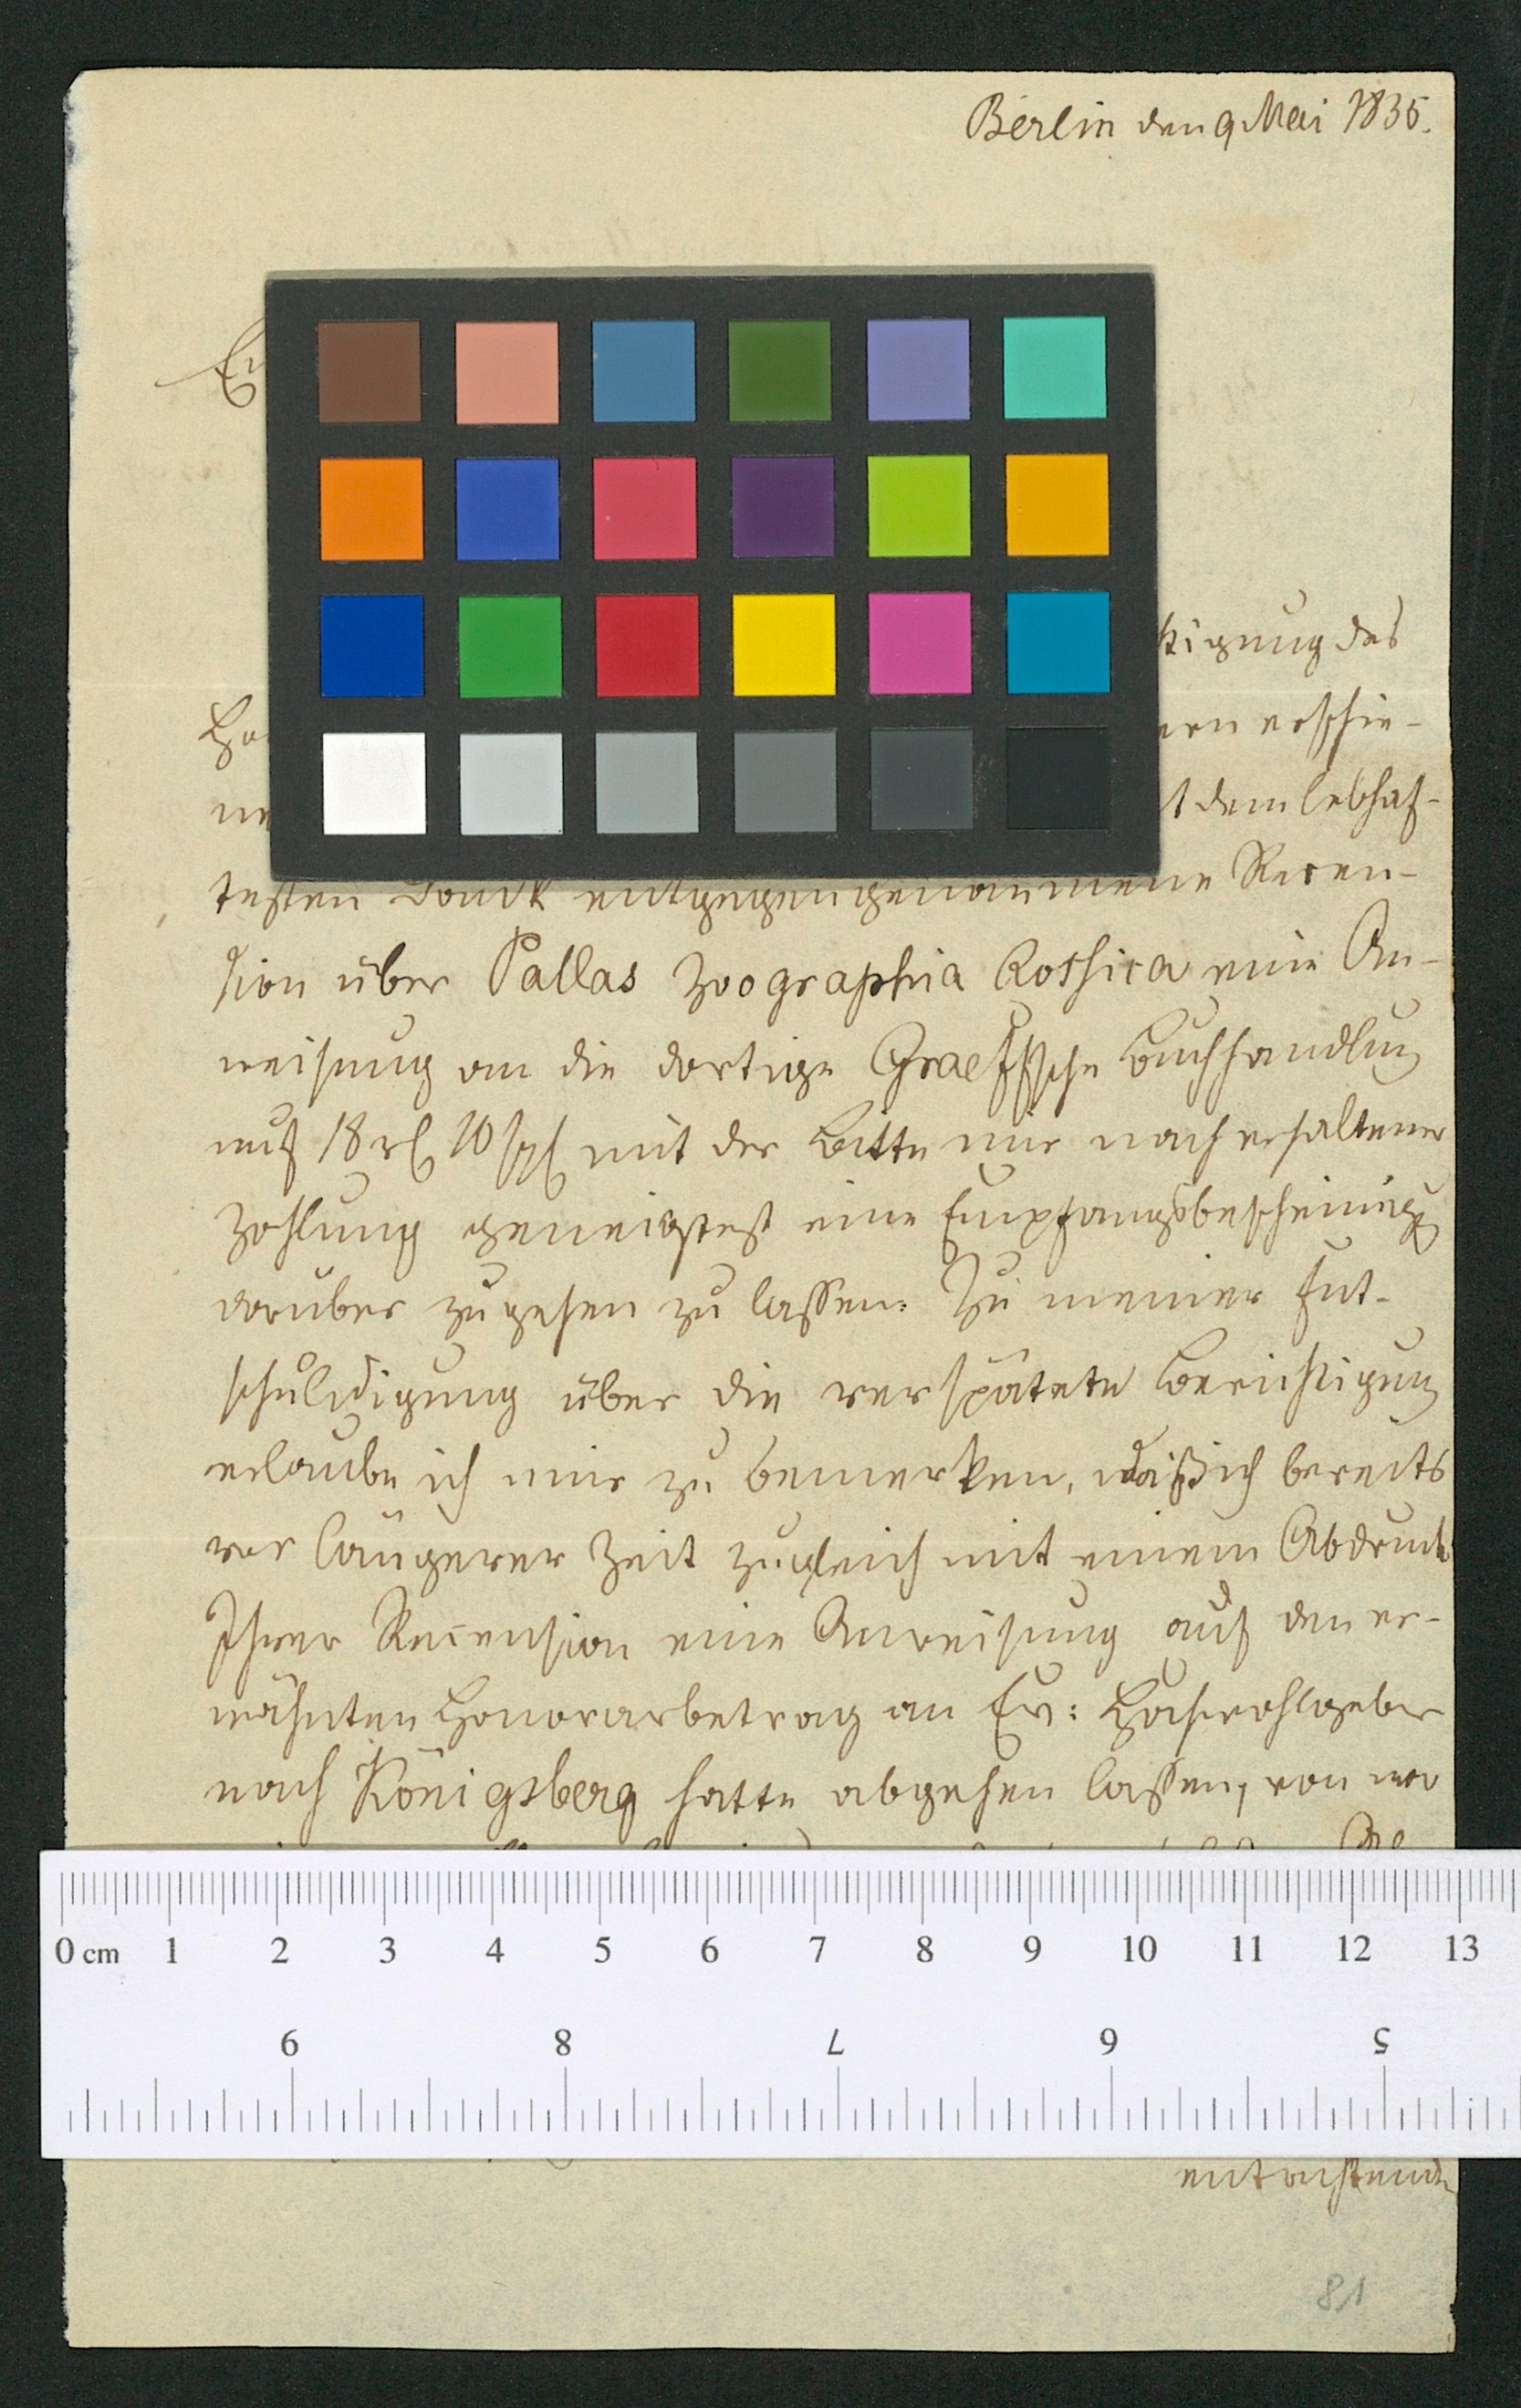 Berlin den 9 Mai 1835.
Ew
tigung des
Ho
ern erschie-
ne
t dem lebhaf-
testen Danck entgegengenommene Recen-
sion über Pallas Zoographia Rossica eine An-
weisung an die dortige Graeffsche Buchhandlung
auf 18 rl 10 sgl mit der Bitte mir nach erhaltener
Zahlung geneigtest eine Empfangsbescheinigg
darüber zugehen zu lassen. Zu meiner Ent-
schuldigung über die verspätete Berichtigung
erlaube ich mir zu bemerken, daß ich bereits
vor längerer Zeit zugleich mit einem Abdruck
Ihrer Recension eine Anweisung auf den er-
wähnten Honorarbetrag an Ew: Hochwohlgebor
nach Königsberg hatte abgehen lassen, von wo
0 cm 1 2 3 4 5 6 7 8 9 10 11 12 13
9 8 7 6 5
81